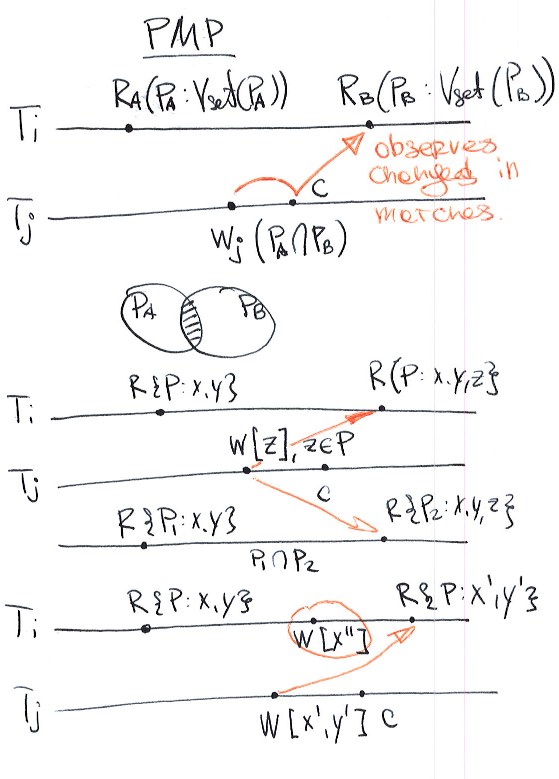 PMP
R_A(P_A : Vset(P_A)) R_B(P_B : Vset(P_B))
Ti
observes
changes in
matches.
C
Tj
Wj (P_A ∩ P_B)
P_A P_B
R{P: x,y} R(P: x.y,z}
Ti
W[z], z∈P
Tj
C
R{P₁: x.y} R{P₂: x.y,z}
P₁ ∩ P₂
R{P: x,y} R{P: x',y'}
Ti
W[x'']
Tj
W[x',y'] C